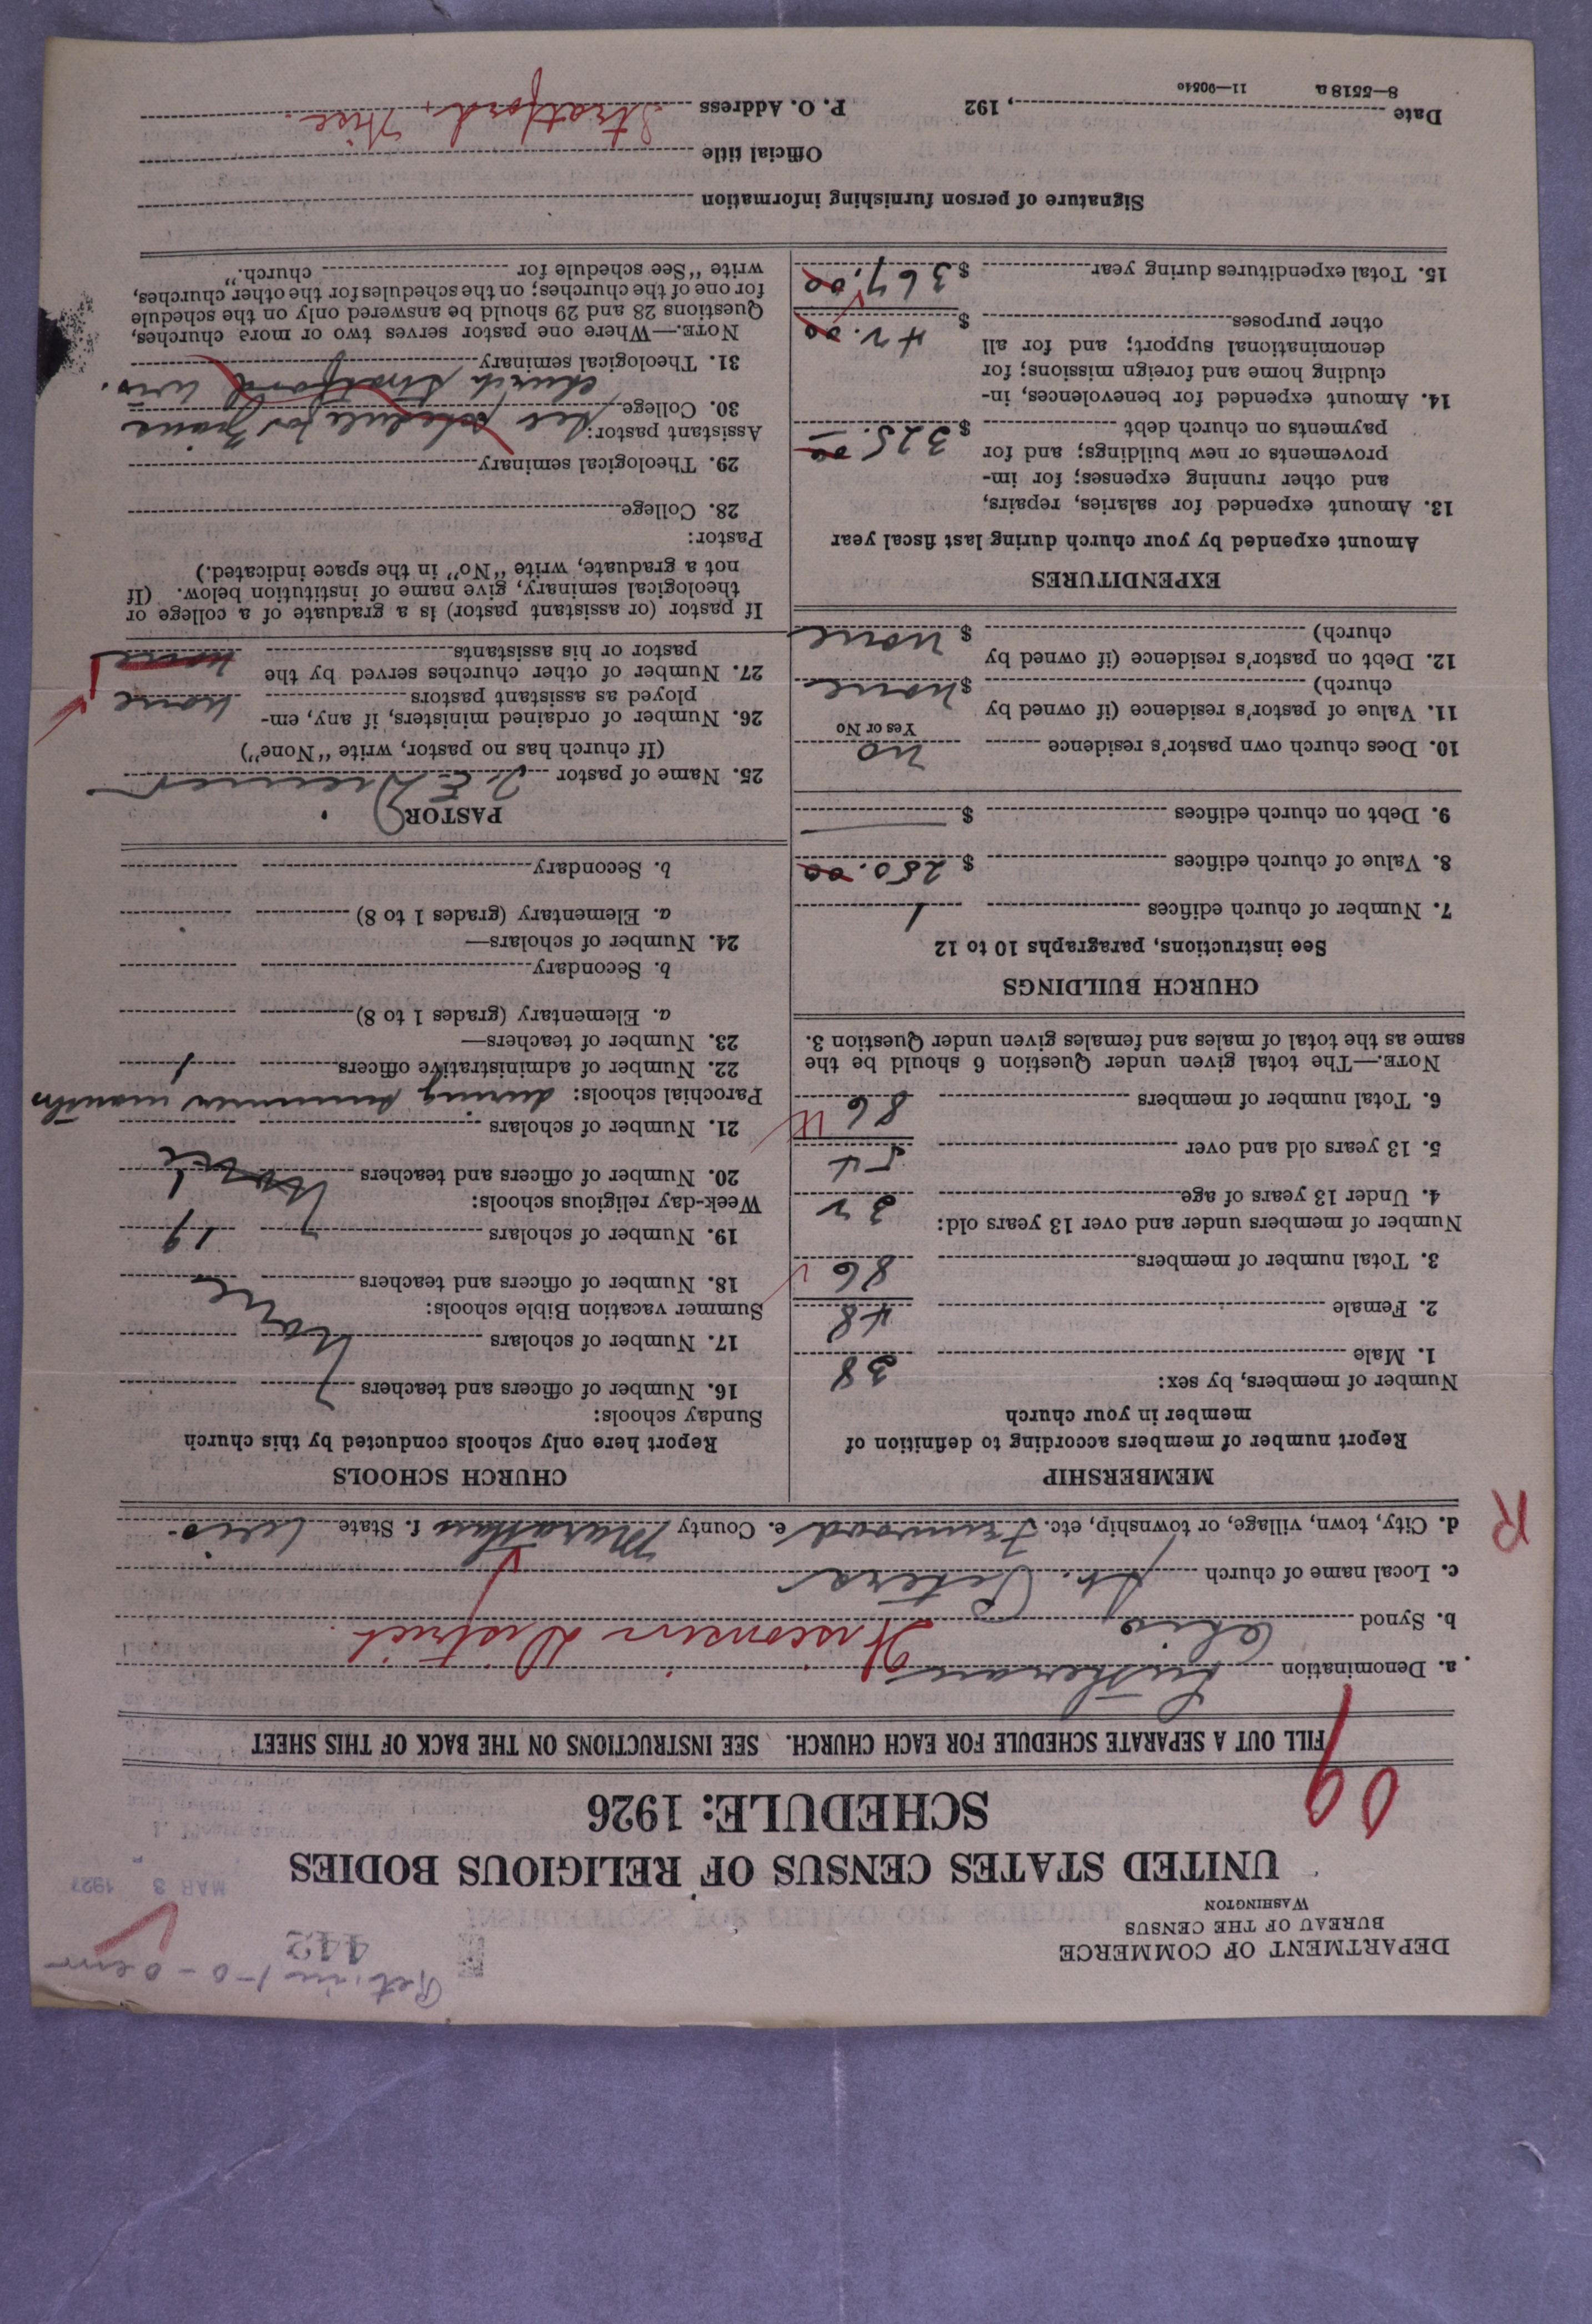 DEPARTMENT OF COMMERCE
BUREAU OF THE CENSUS
WASHINGTON
442
MAR 3 1927
UNITED STATES CENSUS OF RELIGIOUS BODIES
SCHEDULE: 1926
FILL OUT A SEPARATE SCHEDULE FOR EACH CHURCH. SEE INSTRUCTIONS ON THE BACK OF THIS SHEET
a. Denomination Lutheran
b. Synod Ohio Wisconsin District
c. Local name of church St. Peters
d. City, town, village, or township, etc. Fenwood e. County Marathon f. State Wis.
R
MEMBERSHIP
Report number of members according to definition of
member in your church
Number of members, by sex:
1. Male 38
2. Female 48
3. Total number of members 86
Number of members under and over 13 years old:
4. Under 13 years of age 32
5. 13 years old and over 54
6. Total number of members 86
NOTE.—The total given under Question 6 should be the
same as the total of males and females given under Question 3.
CHURCH BUILDINGS
See instructions, paragraphs 10 to 12
7. Number of church edifices 1
8. Value of church edifices $ 250.00
9. Debt on church edifices $
10. Does church own pastor's residence no
Yes or No
11. Value of pastor's residence (if owned by
church) $ none
12. Debt on pastor's residence (if owned by
church) $ none
EXPENDITURES
Amount expended by your church during last fiscal year
13. Amount expended for salaries, repairs,
and other running expenses; for im-
provements or new buildings; and for
payments on church debt $ 325.00
14. Amount expended for benevolences, in-
cluding home and foreign missions; for
denominational support; and for all
other purposes $ 42.00
15. Total expenditures during year $ 367.00
CHURCH SCHOOLS
Report here only schools conducted by this church
Sunday schools:
16. Number of officers and teachers
17. Number of scholars None
Summer vacation Bible schools:
18. Number of officers and teachers
19. Number of scholars 19
Week-day religious schools:
20. Number of officers and teachers 1
21. Number of scholars
Parochial schools: during summer months
22. Number of administrative officers 1
23. Number of teachers—
a. Elementary (grades 1 to 8)
b. Secondary
24. Number of scholars—
a. Elementary (grades 1 to 8)
b. Secondary
PASTOR
25. Name of pastor
(If church has no pastor, write "None")
26. Number of ordained ministers, if any, em-
ployed as assistant pastors none
27. Number of other churches served by the
pastor or his assistants none
If pastor (or assistant pastor) is a graduate of a college or
theological seminary, give name of institution below. (If
not a graduate, write "No" in the space indicated.)
Pastor:
28. College
29. Theological seminary
Assistant pastor: See schedule for
30. College church Stratford Wis.
31. Theological seminary
NOTE.—Where one pastor serves two or more churches,
Questions 28 and 29 should be answered only on the schedule
for one of the churches; on the schedules for the other churches,
write "See schedule for church."
Signature of person furnishing information
Official title
Date , 192 P. O. Address Stratford, Wis.
8—5518 a 11—90540